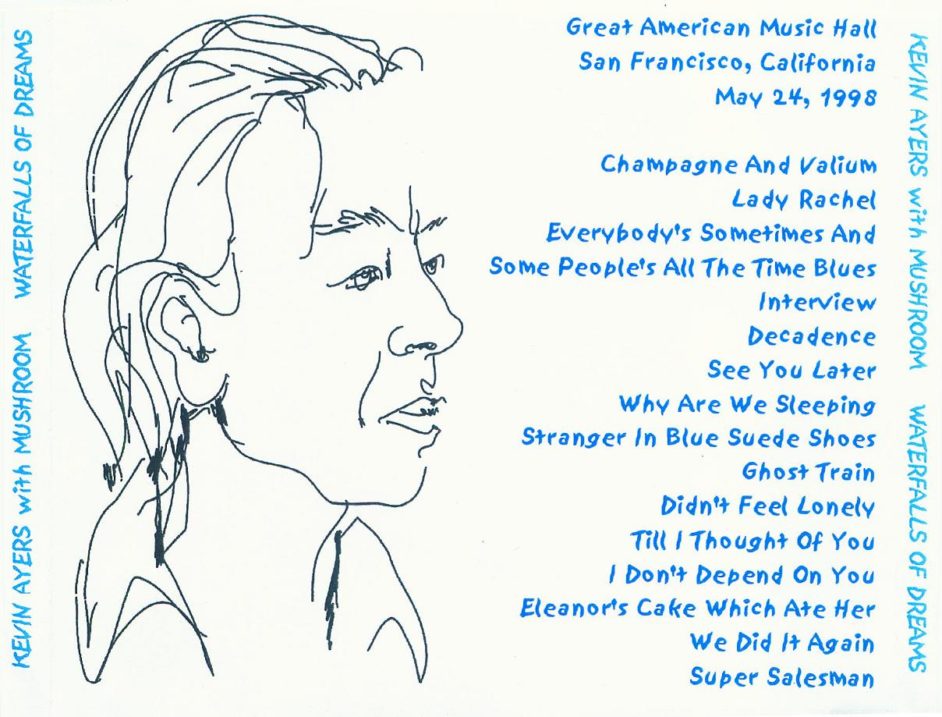 KEVIN AYERS with MUSHROOM WATERFALLS OF DREAMS
Great American Music Hall
San Francisco, California
May 24, 1998
Champagne And Valium
Lady Rachel
Everybody's Sometimes And
Some People's All The Time Blues
Interview
Decadence
See You Later
Why Are We Sleeping
Stranger In Blue Suede Shoes
Ghost Train
Didn't Feel Lonely
Till I Thought Of You
I Don't Depend On You
Eleanor's Cake Which Ate Her
We Did It Again
Super Salesman
KEVIN AYERS with MUSHROOM WATERFALLS OF DREAMS